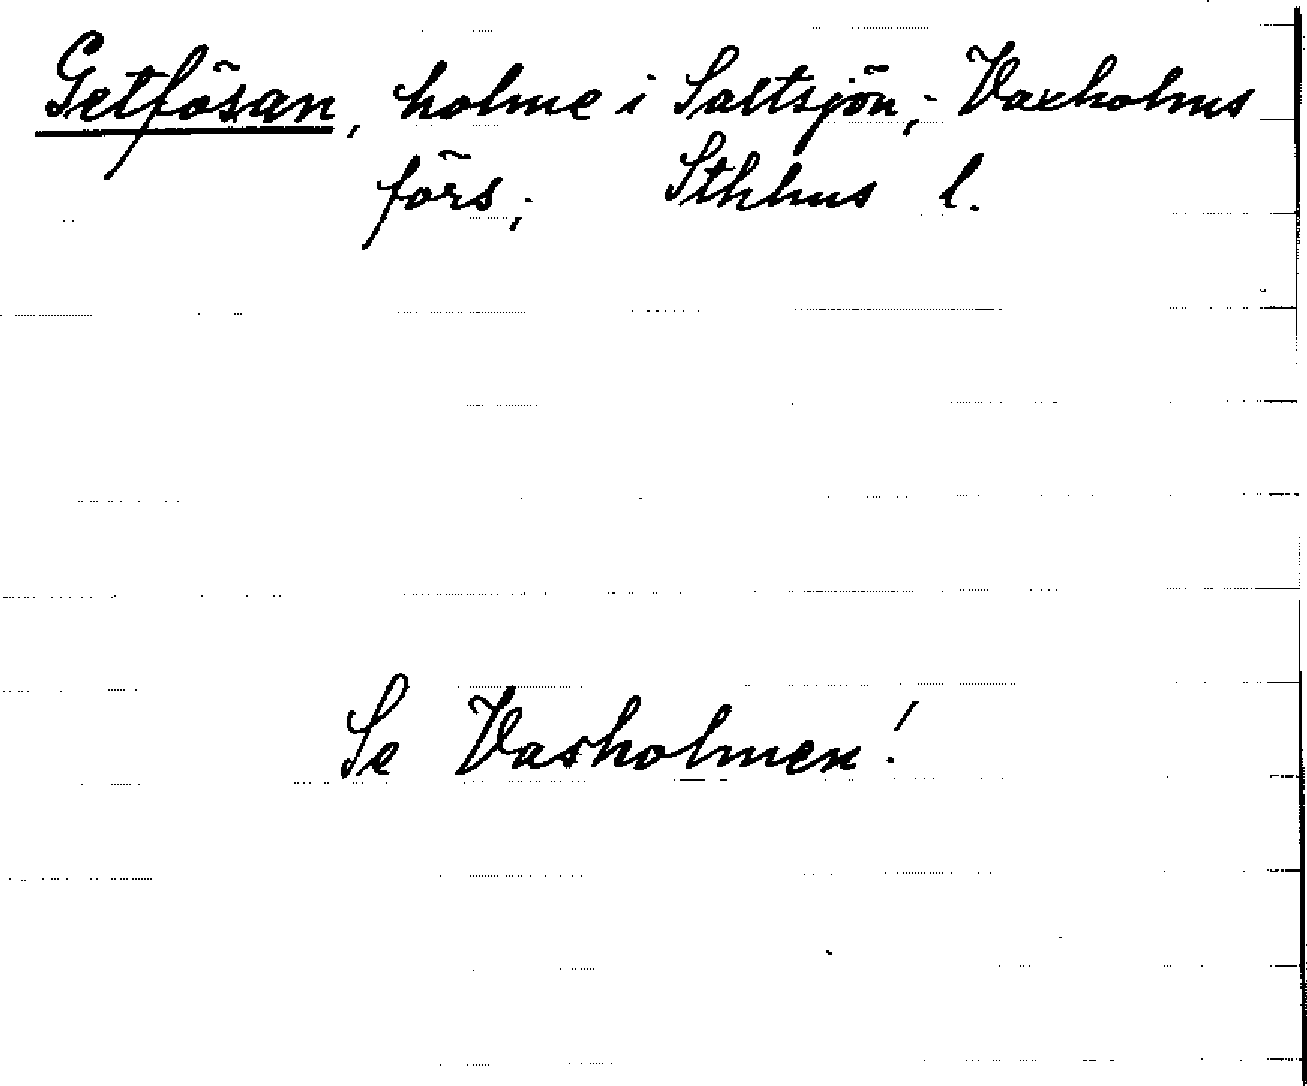 Getfösan, holme i Saltsjön; Vaxholms
förs; Sthhms l.
Se Vaxholmen!